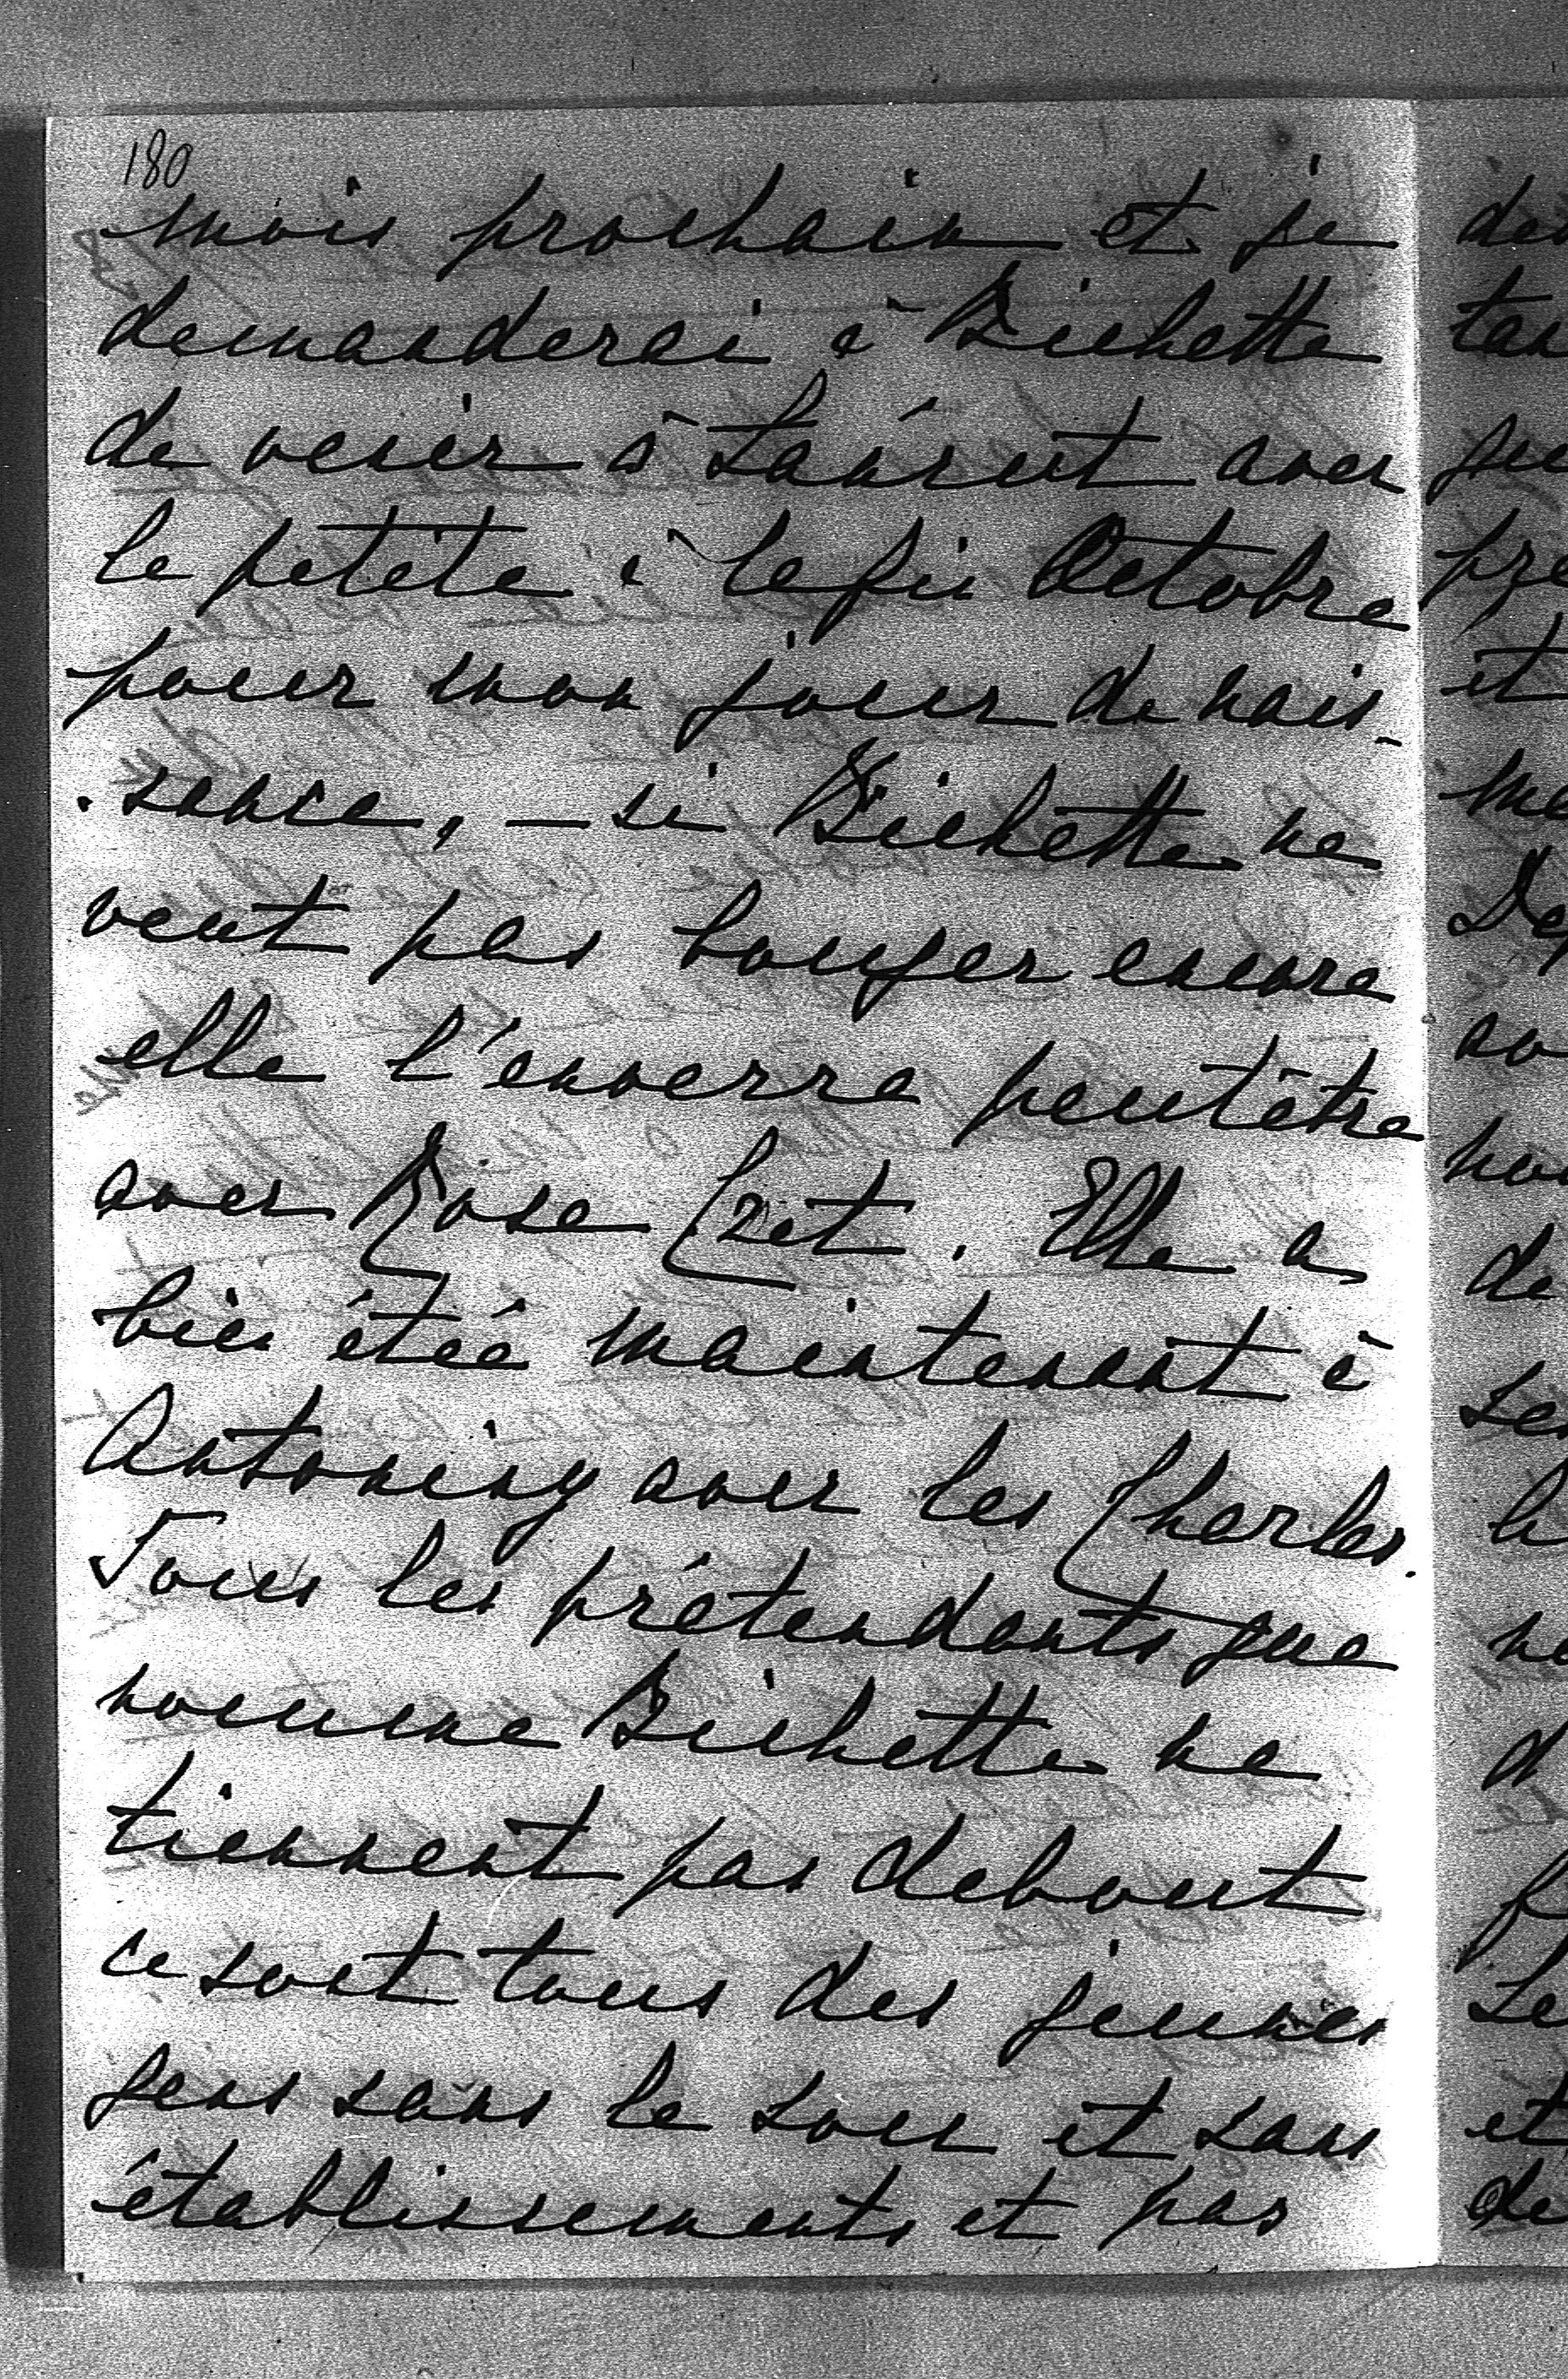 180
mois prochain et je
demanderai à Bichette
de venir à Lancut avec
la petite à la fin Octobre
pour mon jour de nais-
sance, – si Bichette ne
veut pas bouger encore
elle l'enverra peutêtre
avec Rose Czet. Elle a
bien étée maintenant à
Antoniny avec les Charles.
Tous les prétendants que
nomme Bichette ne
tiennent pas debout
ce sont tous des jeunes
gens sans le sou et sans
établissements et pas